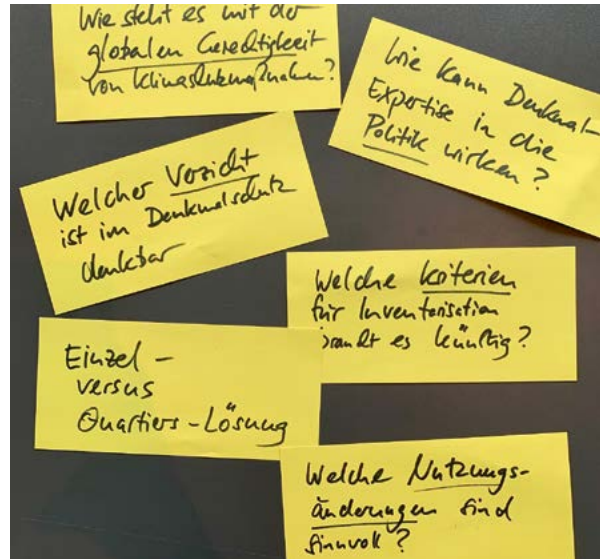 Wie steht es mit der
globalen Gerechtigkeit
von Klimaschutzmaßnahmen?
Wie kann Denkmal-
Expertise in die
Politik wirken?
Welcher Verzicht
ist im Denkmalschutz
denkbar
Welche Kriterien
für Inventarisation
braucht es künftig?
Einzel-
versus
Quartiers-Lösung
Welche Nutzungs-
änderungen sind
sinnvoll?